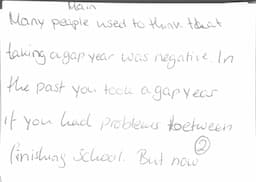 Main
Many people used to think that
taking a gap year was negative. In
the past you took a gap year
if you had problems between
finishing school. But now
2